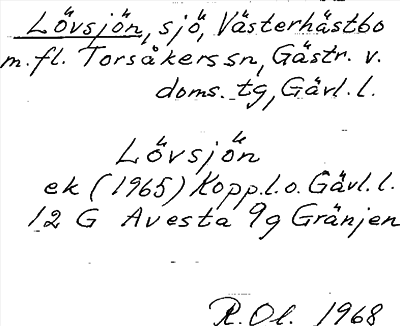 Lövsjön, sjö, Västerhästbo
m.fl. Torsåkers sn, Gästr. v.
doms. tg, Gävl. l.
Lövsjön
ek (1965) Kopp.l.o. Gävl. l.
12 G Avesta 9g Gränjen
R.Ol. 1968